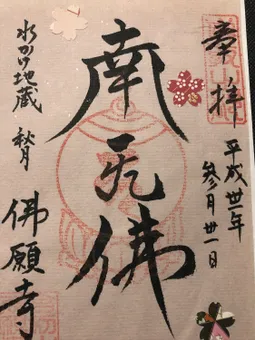 奉拝
平成卅一年
參月卅一日
南无佛
水かけ地蔵 秋月
佛願寺